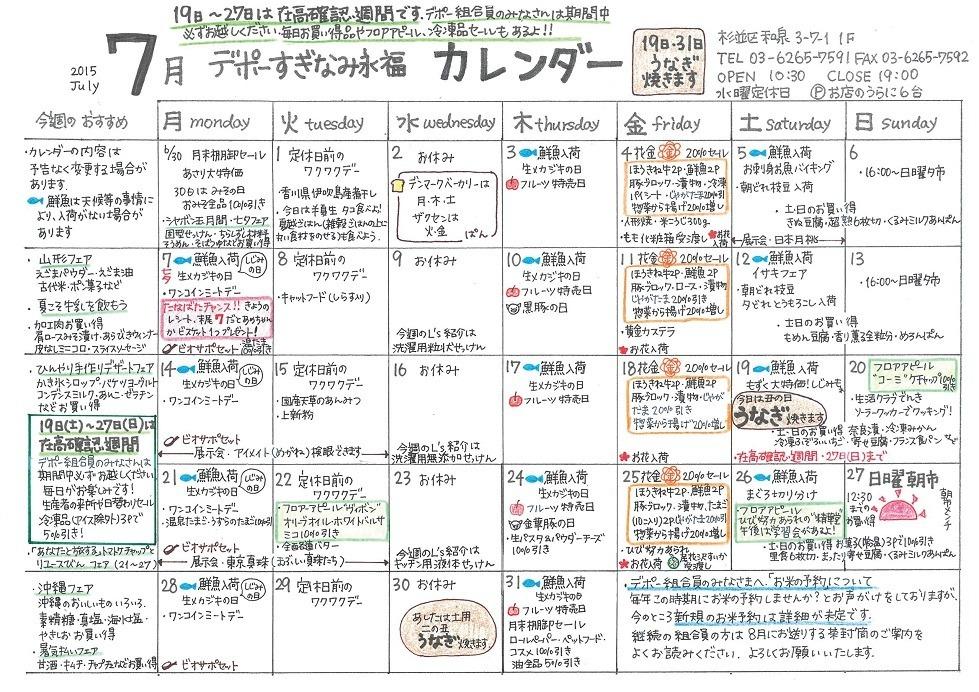 19日～27日は在高確認週間です。デポー組合員のみなさんは期間中
必ずお越しください。毎日お買い得品やフロアアピール、冷凍品セールもあるよ!!
2015
July
7月 デポーすぎなみ永福 カレンダー
19日・31日
うなぎ
焼きます
杉並区和泉3-7-1 1F
TEL 03-6265-7591 FAX 03-6265-7592
OPEN 10:30 CLOSE 19:00
水曜定休日 Ⓟお店のうらに6台
今週のおすすめ
月 monday
火 tuesday
水 wednesday
木 thursday
金 friday
土 saturday
日 sunday
・カレンダーの内容は
予告なく変更する場合が
あります。
鮮魚は天候等の事情に
より、入荷がない場合が
あります
6/30 月末棚卸セール
あさり大特価
30日はみその日
おみそ全品10%引き
・シャボン玉月間・七夕フェア
1 定休日前の
ワクワクデー
・香川県伊吹島産煮干し
2 お休み
デンマークベーカリーは
月・木・土
ザクセンは
火・金
ぱん
3 鮮魚入荷
生メカジキの日
フルーツ特売日
4 花金 20%セール
ほうきね牛2P・鮮魚2P
豚ブロック・漬物・冷凍
パイシート・じゃがたま20%引き
惣菜から揚げ20%増し
・人形焼・米こうじ300g
もも化粧箱受渡し お花入荷
5 鮮魚入荷
お刺身お魚バイキング
・朝どれ枝豆入荷
・土・日のお買い得
きぬ豆腐・超熟6枚切・くるみミルクあんぱん
←展示会・日本月桃→
6
・16:00～日曜夕市
・山形フェア
えごまパウダー・えごま油
古代米・ポン菓子など
・夏こそ牛乳を飲もう
・加工肉お買い得
肩ロースみそ漬け・あらびきウィンナー
皮なしミニコロ・スライスソーセージ
7 鮮魚入荷
しじみの日
生メカジキの日
・ワンコインミートデー
たなばたチャンス!! きょうの
レシート、末尾7だとあかちゃん
かビスケット1つプレゼント!
ビオサポセット
8 定休日前の
ワクワクデー
・キャットフード(しらす入り)
9 お休み
今週のL's紹介は
洗濯用粒状せっけん
10 鮮魚入荷
生メカジキの日
フルーツ特売日
黒豚の日
11 花金 20%セール
ほうきね牛2P・鮮魚2P
豚ブロック・ロース・漬物
じゃがたま20%引き
惣菜から揚げ20%増し
・黄金カステラ
お花入荷
12 鮮魚入荷
イサキフェア
・朝どれ枝豆
夕どれとうもろこし入荷
・土日のお買い得
もめん豆腐・香り薫る全粒分・めろんぱん
13
・16:00～日曜夕市
・ひんやり手作りデザートフェア
かき氷シロップ・バナナヨーグルト
コンデンスミルク・あんこ・ゼラチン
などお買い得
19日(土)～27日(日)は
在高確認週間
デポー組合員のみなさんは
期間中必ずお越しください
毎日がお楽しみです!
生産者の来所や日替わりセール
冷凍品(アイス除外)3Pで
5%引き!
14 鮮魚入荷
しじみの日
生メカジキの日
・ワンコインミートデー
ビオサポセット
←展示会・アイメイト(めがね)検眼できます→
15 定休日前の
ワクワクデー
・国産天草のあんみつ
・上新粉
16 お休み
今週のL's紹介は
洗濯用無添加せっけん
17 鮮魚入荷
生メカジキの日
フルーツ特売日
18 花金 20%セール
ほうきね牛2P・鮮魚2P
豚ブロック・漬物・じゃが
たま20%引き
惣菜から揚げ20%増し
お花入荷
19 鮮魚入荷
もずく大特価!しじみも
今日は丑の日
うなぎ焼きます
・土・日のお買い得 奈良漬・冷凍みかん
・在高確認週間・27日(日)まで
20 フロアアピール
"コーミ"ケチャップ10%引き
・生活クラブでんき
ソーラークッカーでクッキング!
・あなたと旅するトマトケチャップと
リユースびんフェア(21～27)
21 鮮魚入荷
しじみの日
生メカジキの日
・ワンコインミートデー
・温泉たまご・うずらのたまご10%引き
ビオサポセット
←展示会・東京真珠(あぶない真珠たち)→
22 定休日前の
ワクワクデー
・フロアアピール"ヴィボン"
オリーブオイル・ホワイトバルサ
ミコ10%引き
23 お休み
今週のL's紹介は
キッチン用液体せっけん
24 鮮魚入荷
生メカジキの日
フルーツ特売日
金華豚の日
・生パスタ&パウダーチーズ
10%引き
25 花金 20%セール
ほうきね牛2P・鮮魚2P
豚ブロック・漬物・たまご
(10こ入り)2P・じゃがたま
20%引き
惣菜から揚げ20%増し
・ひび努あられ
お花入荷
26 鮮魚入荷
まぐろ切り分け
フロアアピール
ひび努あられの"精華堂"
午後は学習会があるよ!
・土・日のお買い得 お菓子(物品)3Pで10%引き
里香6枚切・まったり寄せ豆腐・くるみミルクあんぱん
27 日曜朝市
12:30
までの
お買い得
朝市メンチ
・沖縄フェア
沖縄のおいしものいろいろ。
素精糖・真塩・海水塩・
やきしお お買い得
・暑気払いフェア
甘酒・キムチ・チャプチェなどお買い得
28 鮮魚入荷
しじみの日
生メカジキの日
・ワンコインミートデー
ビオサポセット
29 定休日前の
ワクワクデー
30 お休み
あしたは土用
二の丑
うなぎ焼きます
31 鮮魚入荷
生メカジキの日
フルーツ特売日
月末棚卸セール
ロールペーパー・ペットフード・
コスメ10%引き
油全品5%引き
・デポー組合員のみなさまへ。「お米の予約」について
毎年この時期にお米の予約しませんか?とお声がけをしておりますが、
今のところ新規のお米予約は詳細が未定です。
継続の組合員の方は8月にお送りする茶封筒のご案内を
よくお読みください。よろしくお願いいたします。